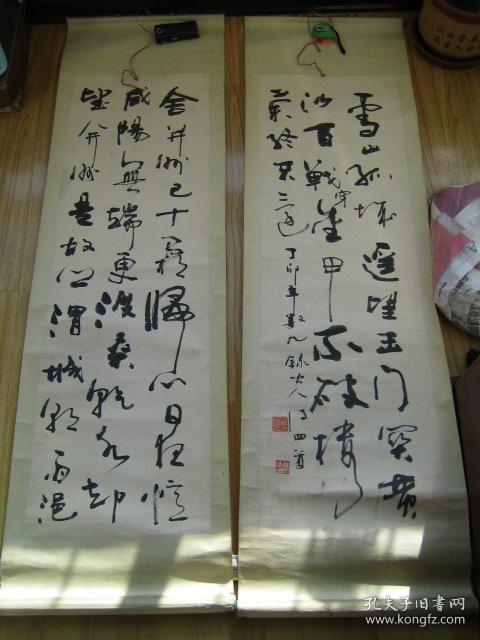 雪山孤城遥望玉门関黄
沙百戰穿金甲不破樓
蘭終不还
丁卯年数九録唐人诗四首
舍并州已十霜歸心日夜憶
咸陽無端更渡桑乾水却
望并州是故鄉渭城朝雨浥
孔夫子旧书网
www.kongfz.com